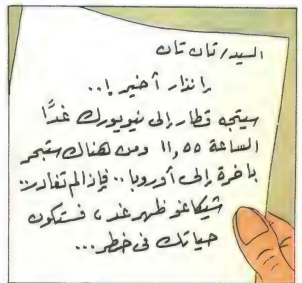 السيد/ تان تان
إنذار أخير !..
سيتجه قطار إلى نيويورك غدًا
الساعة ١١,٥٥ ومن هناك ستبحر
باخرة إلى أوروبا.. فإذا لم تغادر..
شيكاغو ظهر غد، فستكون
حياتك فى خطر...